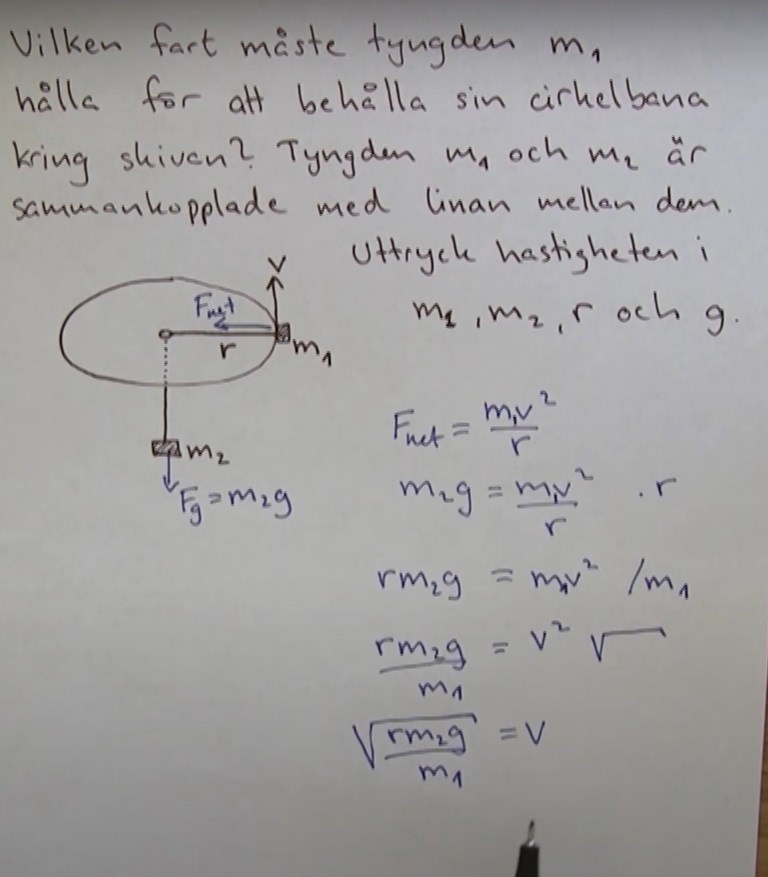 Vilken fart måste tyngden m₁
hålla för att behålla sin cirkelbana
kring skivan? Tyngden m₁ och m₂ är
sammankopplade med linan mellan dem.
Uttryck hastigheten i
m₁, m₂, r och g.
v
Fnet
r
m₁
m₂
Fg = m₂g
Fnet = m₁v²/r
m₂g = m₁v²/r · r
rm₂g = m₁v² /m₁
rm₂g/m₁ = v² √
√(rm₂g/m₁) = v